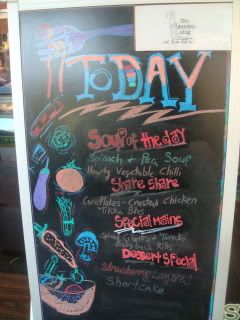 the
garden
slug
TODAY
Soup of the day
Spinash + Pea Soup
Hearty Vegetable Chilli
Share share
Cornflakes - Crusted Chicken
Tikka Bites
Special mains
Spiced Cilantro + Tomato
Baby back Ribs
Dessert Special
Strawberry Layered
Shortcake
S